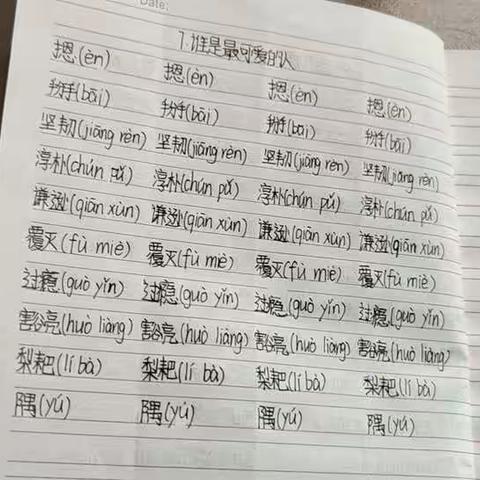 Date:
7.谁是最可爱的人
摁(èn) 摁(èn) 摁(èn) 摁(èn)
掰(bāi) 掰(bāi) 掰(bāi) 掰(bāi)
坚韧(jiāng rèn) 坚韧(jiāng rèn) 坚韧(jiāng rèn) 坚韧(jiāng rèn)
淳朴(chún pǔ) 淳朴(chún pǔ) 淳朴(chún pǔ) 淳朴(chún pǔ)
谦逊(qiān xùn) 谦逊(qiān xùn) 谦逊(qiān xùn) 谦逊(qiān xùn)
覆灭(fù miè) 覆灭(fù miè) 覆灭(fù miè) 覆灭(fù miè)
过瘾(guò yǐn) 过瘾(guò yǐn) 过瘾(guò yǐn) 过瘾(guò yǐn)
豁亮(huò liàng) 豁亮(huò liàng) 豁亮(huò liàng) 豁亮(huò liàng)
犁耙(lí bà) 犁耙(lí bà) 犁耙(lí bà) 犁耙(lí bà)
隅(yú) 隅(yú) 隅(yú) 隅(yú)